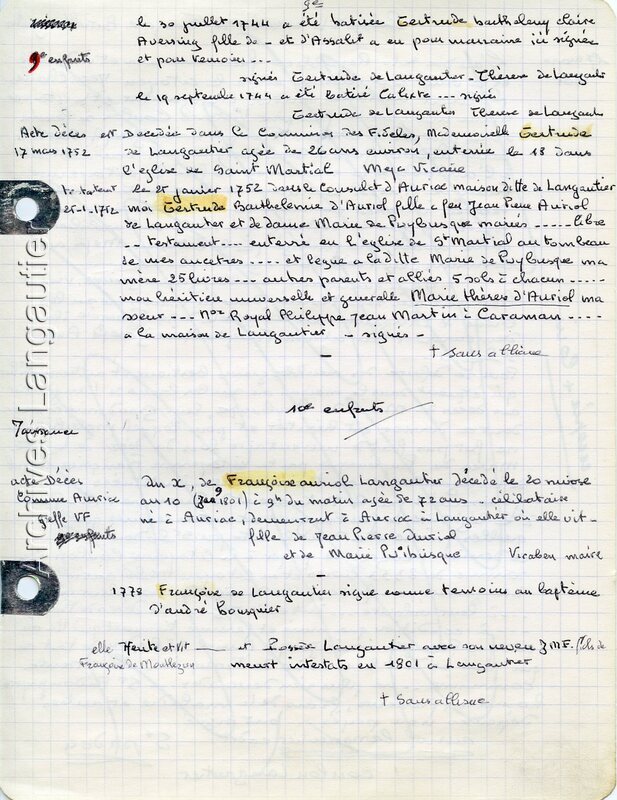 9e
le 30 juillet 1744 a été batisée Gertrude Barthelemy Claire
9e enfants
Aversing fille de - et d'Assalit a eu pour marraine ici signée
et pour temoins ...
signés Gertrude de Langautier - Thérèse de Langauti
le 19 septembre 1744 a été batisé Calixte --- signés
Gertrude de Langautier Therese de Langautie
Acte décès est Decedée dans la Commune des , Mademoiselle Gertrude
17 mars 1752 de Langautier agée de 26 ans environ, enterrée le 18 dans
l'église de Saint Martial Meja Vicaire
le testament le 25 janvier 1752 dans le Consulat d'Auriac maison ditte de Langautier
25-1-1752 moi Gertrude Barthelemie d'Auriol fille a feu Jean Pierre Auriol
de Langautier et de dame Marie de Puybusque mariés ----- libre
-- testament ---- enterré en l'église de St Martial au tombeau
de mes ancetres .... et legue a la ditte Marie de Puybusque ma
mère 25 livres --- autres parents et alliés 5 sols à chacun -----
mon héritière universelle et generalle Marie thérèse d'Auriol ma
soeur --- Nor Royal Philippe Jean Martin à Caraman ----
a la maison de Langautier - signés -
† sans alliance
10e enfants
Naissance
acte Décès Du X, de Françoise auriol Langautier décédé le 20 nivose
Commune Auriac an 10 (1801) à 9h du matin agée de 72 ans - célibataire
greffe VF né à Auriac, demeurant à Auriac à Langautier où elle vit -
fille de Jean Pierre Auriol
et de Marie Puibusque Viraben maire
1778 Françoise de Langautier signe comme temoins au baptême
d'andré Bousquier
elle Herite et vit --- et Possède Langautier avec son neveu J M F. fils de
Françoise de Montlezun meurt intestats en 1801 à Langautier
† sans alliance
Archives Langautier